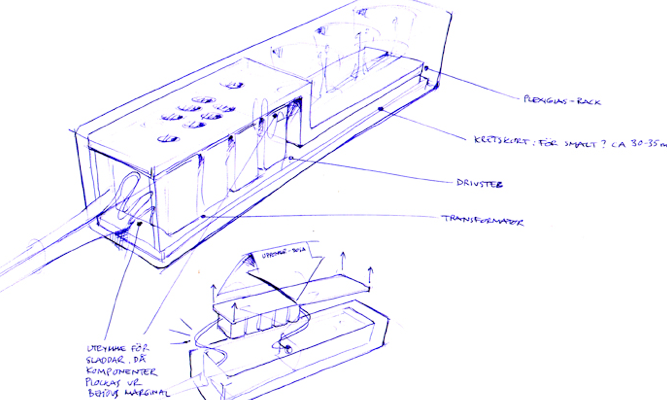 PLEXIGLAS-RACK
KRETSKORT; FÖR SMART? CA 30-35m
DRIVSTEG
TRANSFORMATOR
UTRYMME FÖR
SLADDAR. DÅ
KOMPONENTER
PLOCKAS UR
BEHÖVS MARGINAL